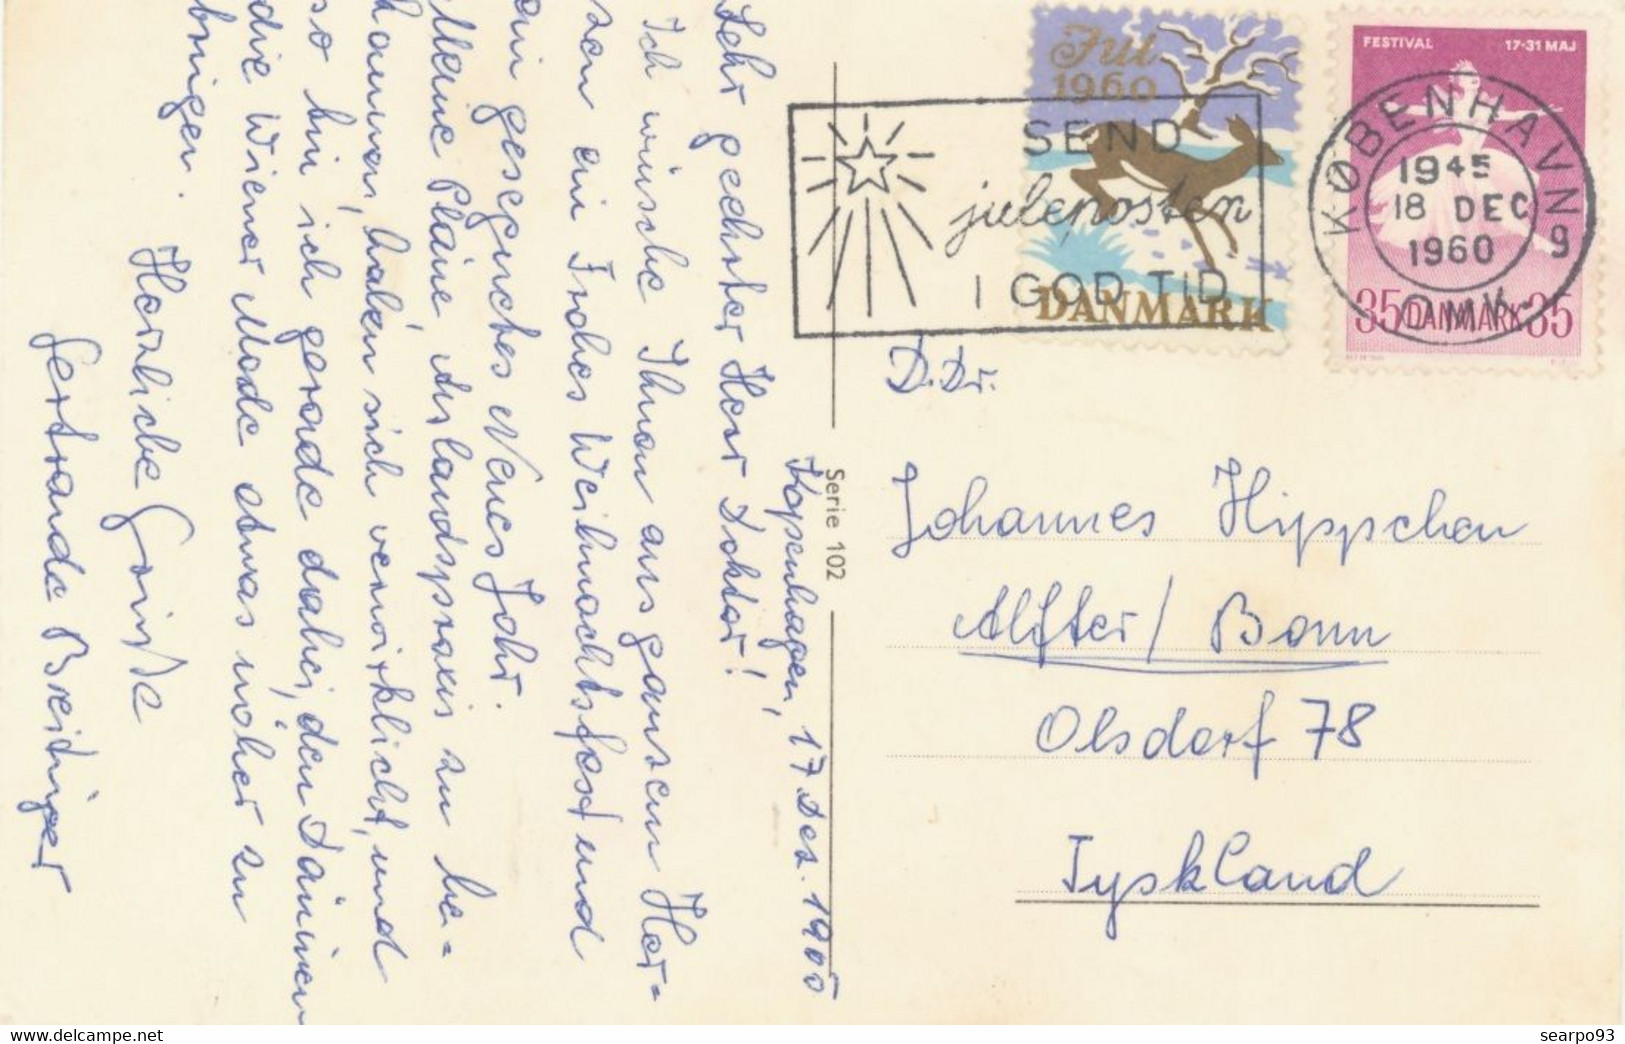 Kopenhagen, 17 Dez. 1960
Sehr geehrter Herr Doktor!
Ich wünsche Ihnen aus ganzem Her=
zen ein Frohes Weihnachtsfest und
ein gesegnetes Neues Jahr.
Meine Pläne, Auslandspraxis zu be=
kommen, haben sich verwirklicht, und
so bin ich gerade dabei, den Däninnen
die Wiener Mode etwas näher zu
bringen.
Herzliche Grüße
Gertrande Breitinger
Serie 102
Jul
1960
DANMARK
SEND
juleposten
I GOD TID
FESTIVAL 17-31 MAJ
35 DANMARK 35
KØBENHAVN 9
1945
18 DEC
1960
OMK.
D.Dr.
Johannes Hippchen
Alfter / Bonn
Olsdorf 78
Tyskland
searpo93